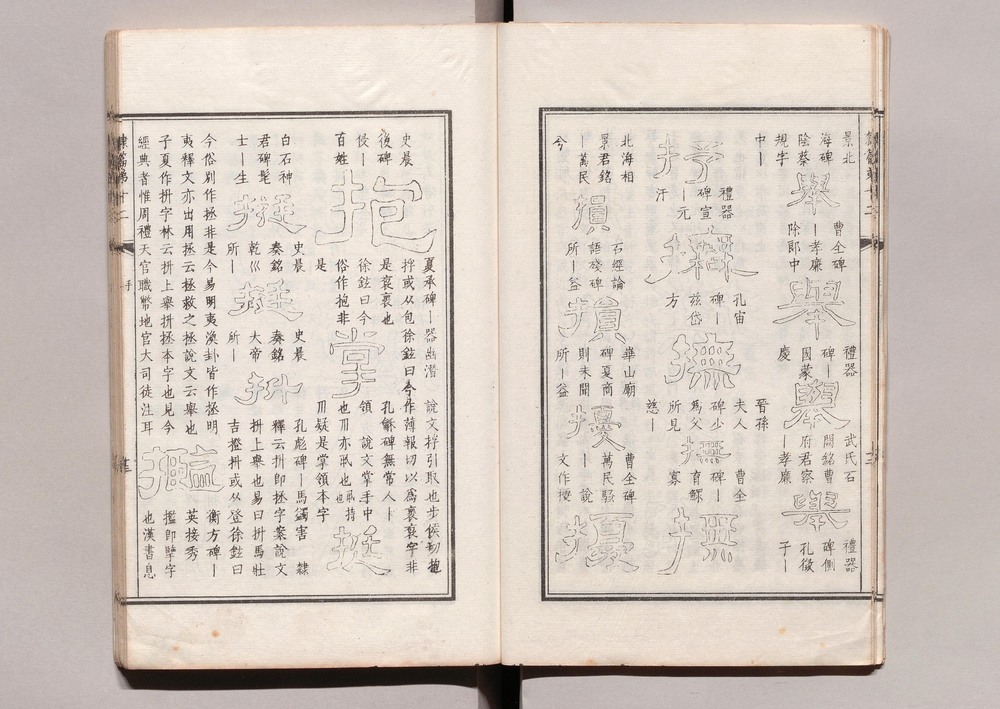 景北
海碑
陰蔡
規字
中丨
舉
曹全碑
丨孝廉
除郎中
舉
禮器
碑丨
國蒙
慶
舉
武氏石
闕銘曹
府君察
丨孝廉
舉
禮器
碑側
孔徵
子丨
抒
禮器
碑宣
丨元
汙
撫
孔宙
碑丨
茲岱
方
撫
晉孫
夫人
碑少
爲父
所見
慈丨
撫
曹全
碑丨
育鰥
寡
撫
北海相
景君銘
丨萬民
今
損
石經論
語殘碑
所丨益
損
華山廟
碑夏商
則未聞
所丨益
擾
曹全碑
萬民騷
丨說
文作㹛
擾
史晨
復碑
侵丨
百姓
抱
夏承碑丨器幽潛 說文捊引取也步侯切抱
捊或从包徐鉉曰今作薄報切以爲褒褒字非
是褒褒也
徐鉉曰今
俗作抱非
是
掌
孔龢碑無常人丨
領 說文掌手中
也爪亦丮也丮持也
爪疑是掌領本字
挺
白石神
君碑髦
士丨生
挺
史晨
奏銘
乾巛
所丨
挺
史晨
奏銘
大帝
所丨
抍
孔彪碑丨馬蠲害 隸
釋云抍即拯字案說文
抍上舉也易曰抍馬壯
吉撜抍或从登徐鉉曰
今俗別作拯非是今易明夷渙卦皆作拯明
夷釋文亦出用拯云拯救之拯說文云舉也
子夏作抍字林云抍上舉抍拯本字也見今
經典者惟周禮天官職幣地官大司徒注耳
㩜
衡方碑丨
英接秀
㩜即擥字
也漢書息